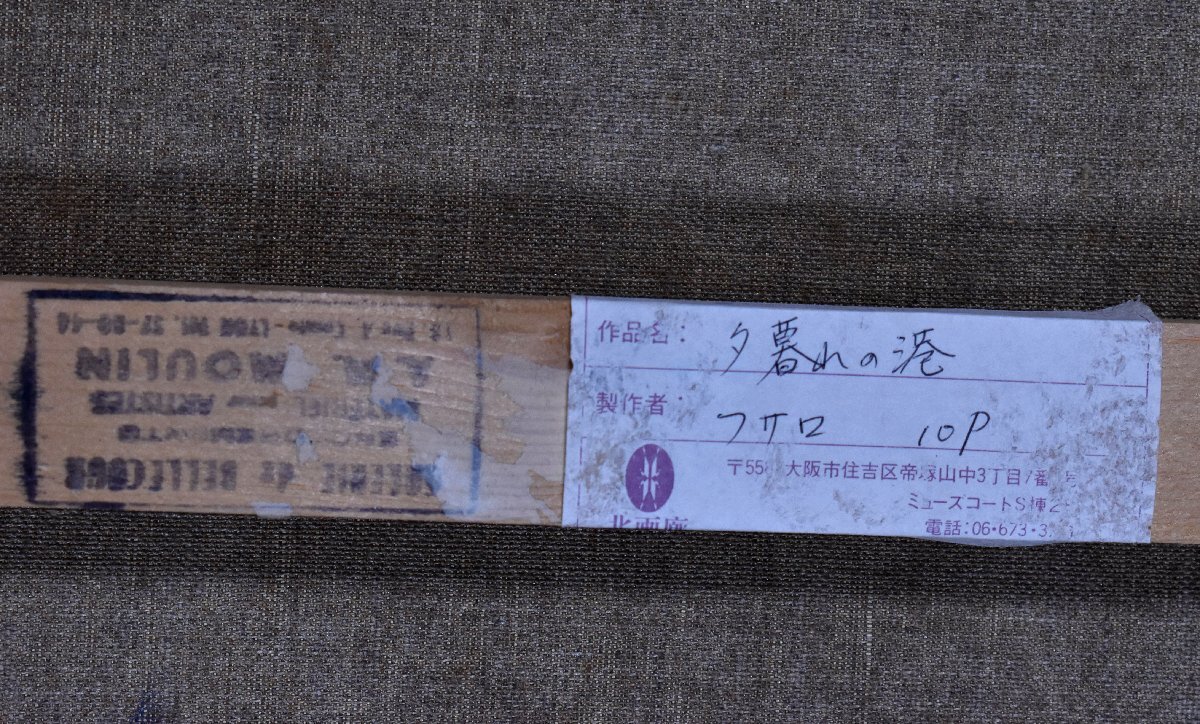 GALERIE de BELLECOUR
ENCADREMENTS
MATERIEL pour ARTISTES
MOULIN
LYON
作品名: 夕暮れの港
製作者: フサロ 10P
大阪市住吉区帝塚山中3丁目7番
ミューズコートS棟2
電話:06・673・3
北画廊